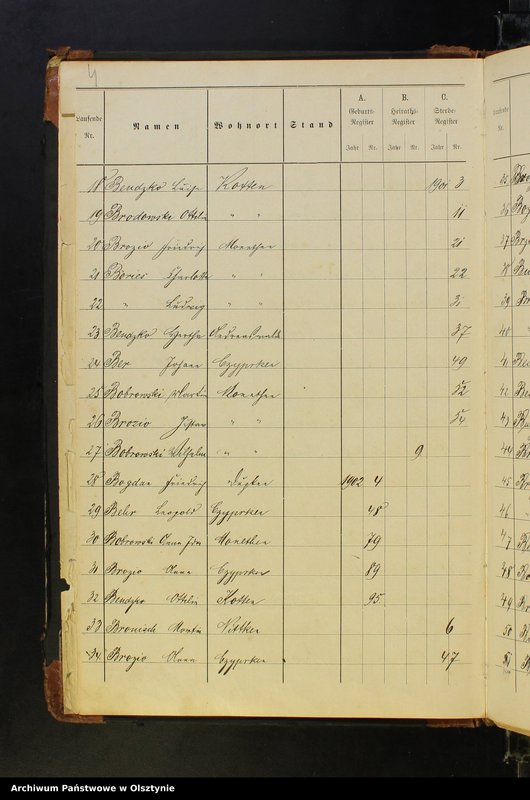 4
Laufende Nr. Namen Wohnort Stand A. Geburts-Register Jahr Nr. B. Heiraths-Register Jahr Nr. C. Sterbe-Register Jahr Nr.
18 Bendzko Luise Kotten 1901 3
19 Brodowski Ottilie " " 11
20 Brozio Friedrich Monethen 21
21 Bories Charlotte " " 22
22 " Ludwig " " 31
23 Bendzko Hertha 37
24 Ber Johann Czyprken 49
25 Bobrowski Martin Monethen 52
26 Brozio " " 54
27 Bobrowski Wilhelm " " 9
28 Bogdan Friedrich 1902 4
29 Behr Leopold Czyprken 48
30 Bobrowski Anna Monethen 79
31 Brozio Anna Czyprken 89
32 Bendzko Ottilie Kotten 95
33 Bronisch Martin Nittken 6
34 Brozio Anna Czyprken 47
Archiwum Państwowe w Olsztynie